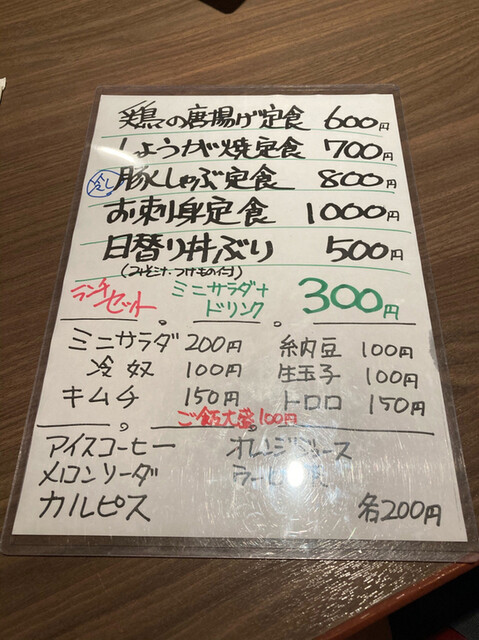 鶏の唐揚げ定食 600円
しょうが焼定食 700円
冷し豚しゃぶ定食 800円
お刺身定食 1000円
日替り丼ぶり 500円
(みそ汁・つけもの付)
ランチセット ミニサラダ+ドリンク 300円
ミニサラダ 200円 納豆 100円
冷奴 100円 生玉子 100円
キムチ 150円 トロロ 150円
ご飯大盛100円
アイスコーヒー オレンジジュース
メロンソーダ
カルピス 各200円